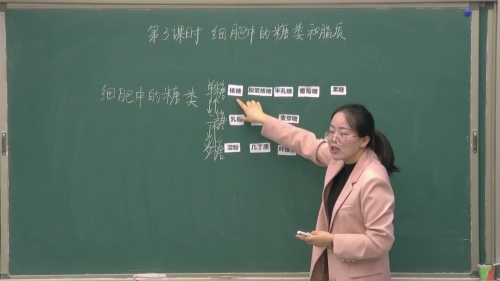 第3课时 细胞中的糖类和脂质
细胞中的糖类
单糖 核糖 脱氧核糖 半乳糖 葡萄糖 果糖
二糖 乳糖 麦芽糖
多糖 淀粉 几丁质 纤维